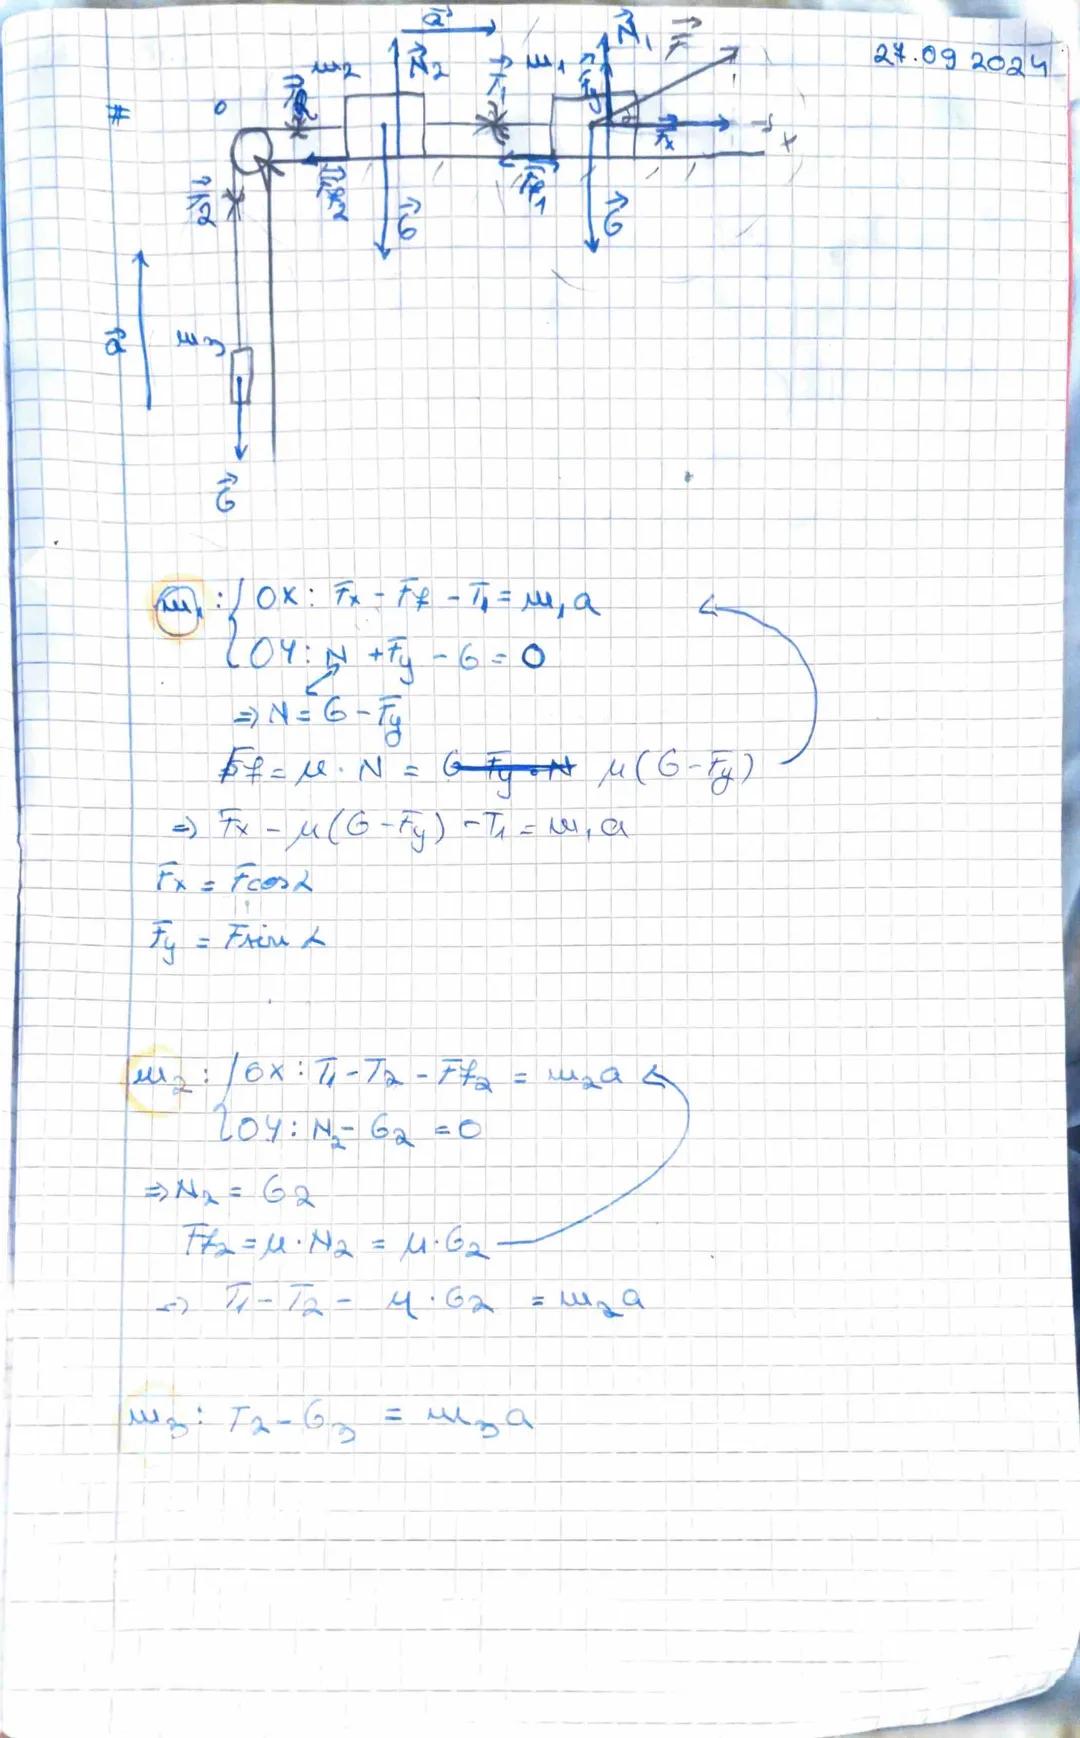 27.09 2024
#
a
m2
N2
T1
m1
N1
Fy
F
T2
Fx
x
T2
Ff2
Ff1
G
G
a
m3
G
m1: { OX: Fx - Ff - T1 = m1a
OY: N + Fy - G = 0
⇒ N = G - Fy
Ff = μ · N = G - Fy · N μ(G - Fy)
⇒ Fx - μ(G - Fy) - T1 = m1a
Fx = Fcosα
Fy = Fsinα
m2: { OX: T1 - T2 - Ff2 = m2a
OY: N2 - G2 = 0
⇒ N2 = G2
Ff2 = μ · N2 = μ · G2
⇒ T1 - T2 - μ · G2 = m2a
m3: T2 - G3 = m3a